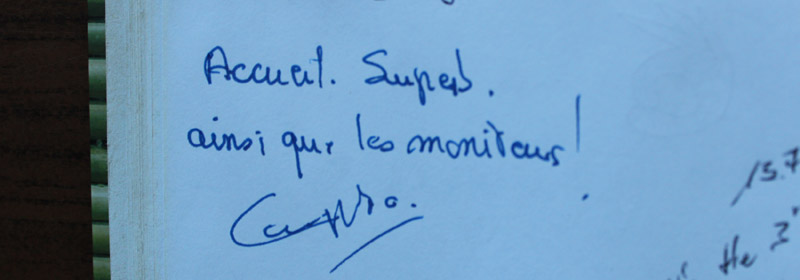 Accueil. Superb.
ainsi que les moniteurs!
15.7
He 3